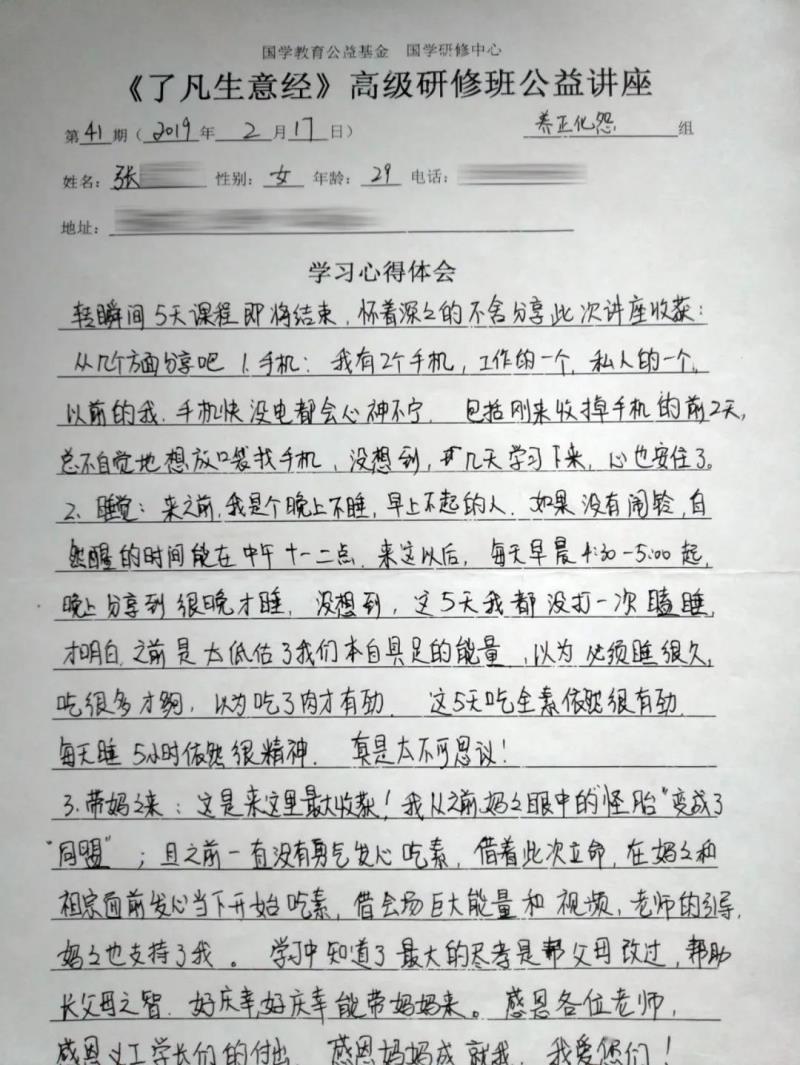 国学教育公益基金 国学研修中心
《了凡生意经》高级研修班公益讲座
第41期（2019年2月17日） 养正化怨组
姓名：张 性别：女 年龄：29 电话：
地址：
学习心得体会
转瞬间5天课程即将结束，怀着深深的不舍分享此次讲座收获：
从几个方面分享吧 1.手机：我有2个手机，工作的一个，私人的一个。
以前的我，手机快没电都会心神不宁。包括刚来收掉手机的前2天，
总不自觉地想放口袋找手机，没想到，几天学习下来，心也安住了。
2、睡觉：来之前，我是个晚上不睡，早上不起的人。如果没有闹铃，自
然醒的时间能在中午十一二点。来这以后，每天早晨4:30-5:00起，
晚上分享到很晚才睡，没想到，这5天我都没打一次瞌睡，
才明白，之前是太低估了我们本自具足的能量，以为必须睡很久，
吃很多才够，以为吃了肉才有劲。这5天吃全素依然很有劲。
每天睡5小时依然很精神。真是太不可思议！
3.带妈妈来：这是来这里最大收获！我从之前妈妈眼中的“怪胎”变成了
“同盟”；且之前一直没有勇气发心吃素，借着此次立命，在妈妈和
祖宗面前发心当下开始吃素，借会场巨大能量和视频，老师的引导，
妈妈也支持了我。学习中知道了最大的尽孝是帮父母改过，帮助
长父母之智。好庆幸，好庆幸能带妈妈来。感恩各位老师，
感恩义工学长们的付出。感恩妈妈成就我，我爱您们！